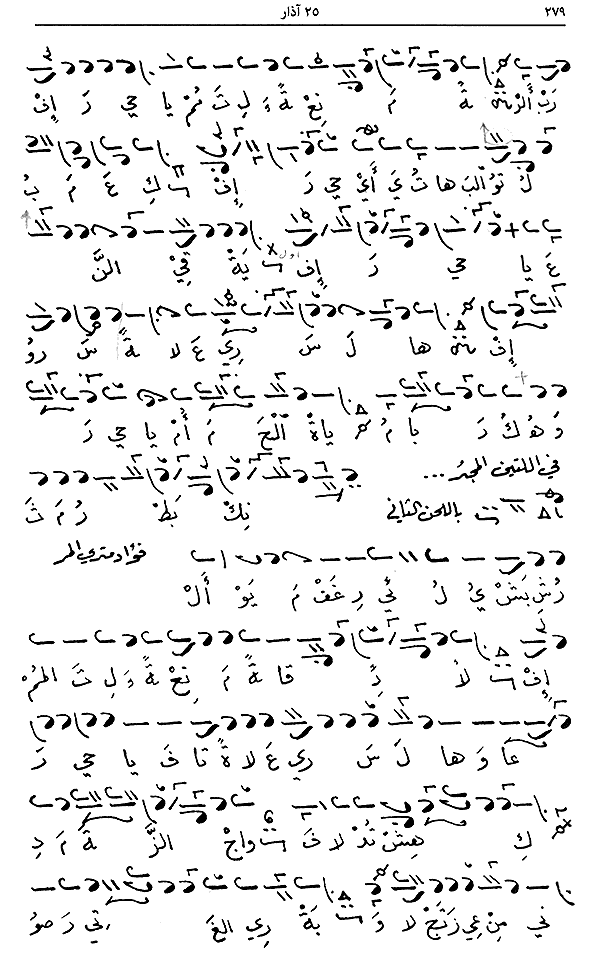 ٢٧٩ ٢٥ آذار
رَبْ ةُ مَ نِعْ ةً ءَ لِ تَ يا حي رَ إِفْ
لُ تو ها تُ يَ أَيْ حي رَ إِفْ كِ عَ مَ بُ
عَ يا حي رَ إِفْ يَةْ فِيْ النَّ
إِفْ ها لَ سَ ري عَ لا ةَ سَ روُ
وَ هُ كُ رَ با مُ ياةْ أَلْحَ مَ أُمْ يا حي رَ
في اللتين المجد...
باللحن الثاني نِكْ بَطْ رُ مَ ثَ
فؤاد متري المر
رُشْ بَشْ يُ لُ ئي رِ غَفْ مَ يَوْ أَلْ
إِفْ لأَ قا ةً مَ نِعْ ةً ءَ لِ تَ المُمْ
عا وَ ها لَ سَ ري عَ لاةً تا فَ يا حي رَ
كِ هِشْ تُدْ لا فَ واجْ الزَّ ةَ مَ دِ
ني مِنْ عي زَتَجْ لا وَ بَةْ ري الغَ تي رَ صوُ